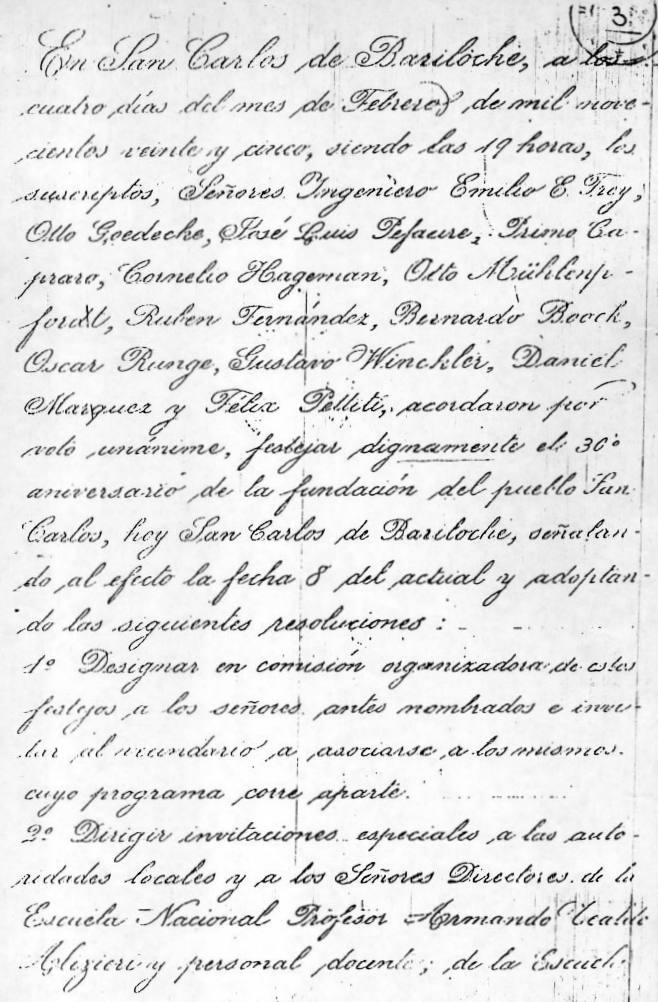 3
En San Carlos de Bariloche, a los
cuatro días del mes de Febrero de mil nove-
cientos veinte y cinco, siendo las 19 horas, los
suscriptos, Señores Ingeniero Emilio E. Frey,
Otto Goedecke, José Luis Pefaure, Primo Ca-
praro, Cornelio Hageman, Otto Mühlenp-
fordt, Ruben Fernández, Bernardo Boock,
Oscar Runge, Gustavo Winckler, Daniel
Marquez y Félix Pelliti, acordaron por
voto unánime, festejar dignamente el 30º
aniversario de la fundación del pueblo San
Carlos, hoy San Carlos de Bariloche, señalan-
do al efecto la fecha 8 del actual y adoptan-
do las siguientes resoluciones:
1º Designar en comisión organizadora de estos
festejos a los señores antes nombrados e invi-
tar al vecindario a asociarse a los mismos
cuyo programa corre aparte.
2º Dirigir invitaciones especiales a las auto-
ridades locales y a los Señores Directores de la
Escuela Nacional Profesor Armando
y personal docente; de la Escuel